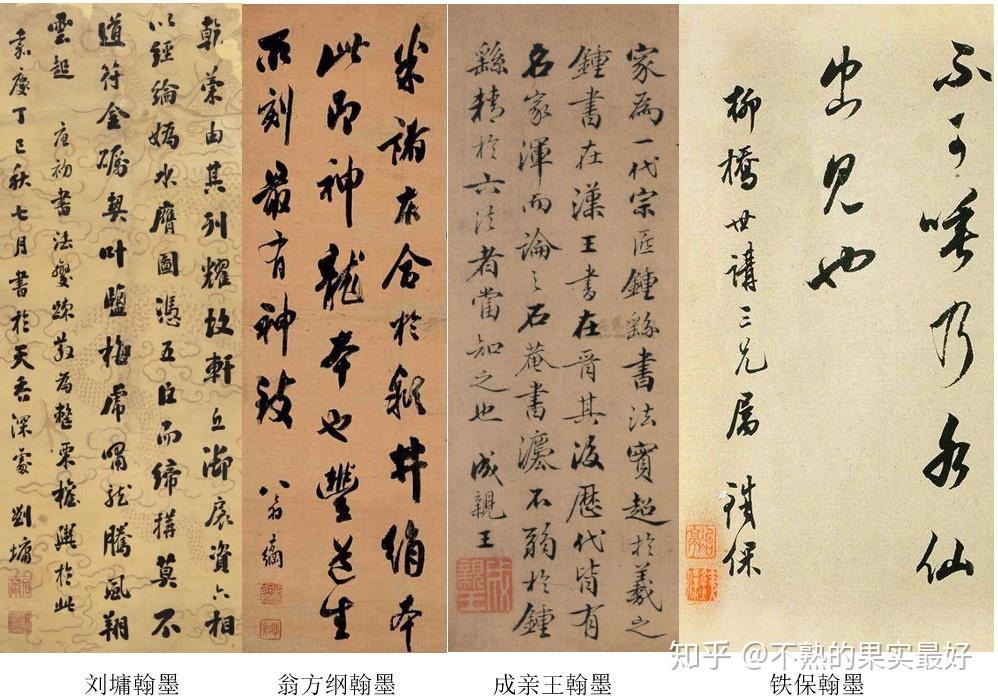 由其列耀故軒丘御扆資六相
以經綸媯水膺圖憑五臣而締搆莫不
道符金礪契叶鹽梅虎嘯龍騰風翔
雲起 唐初書法變疎散為整栗權輿於此
嘉慶丁巳秋七月書於天香深處劉墉
合於井綃本
此即神龍本也豐道生
所刻最有神致 方綱
家為一代宗匠鍾繇書法實超於羲之
鍾書在漢王書在晉其後歷代皆有
名家渾而論之石菴書灋不弱於鍾
繇精於六法者當知之也 成親王
成親王
不可唾乃水仙
出見也
柳橋世講三兄屬 鐵保
知乎 @不熟的果实最好
刘墉翰墨 翁方纲翰墨 成亲王翰墨 铁保翰墨